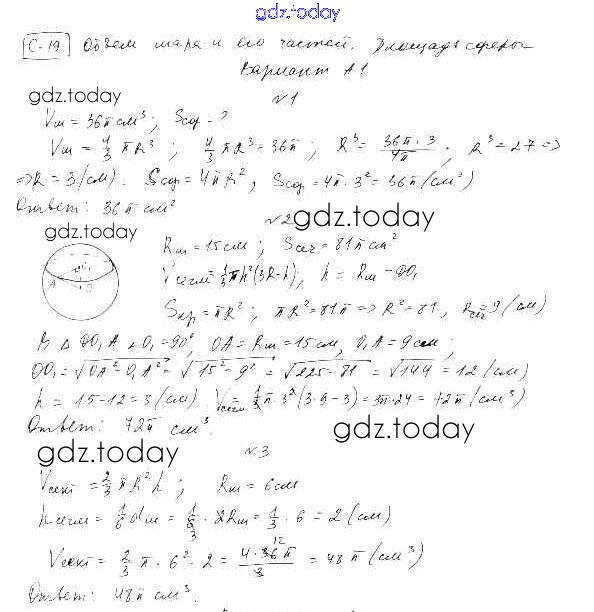 gdz.today
С-19 Объем шара и его частей. Площадь сферы
Вариант А1
gdz.today
№1
Vш = 36π см³; Sсф - ?
Vш = 4/3 πR³; 4/3 πR³ = 36π; R³ = 36π·3/4π; R³ = 27 =>
=> R = 3 (см). Sсф = 4πR², Sсф = 4π·3² = 36π (см²)
Ответ: 36π см²
№2 gdz.today
gdz.today
Rш = 15 см; Sсеч = 81π см²
Vсегм = 1/3 πh²(3R-h); h = Rш - OO₁
A
Sкр = πR²; πR² = 81π => R² = 81, Rсеч = 9 (см)
В △ OO₁A ∠O₁ = 90°, OA = Rш = 15 см, O₁A = 9 см;
OO₁ = √OA² - O₁A² = √15² - 9² = √225 - 81 = √144 = 12 (см)
h = 15 - 12 = 3 (см). Vсегм = 1/3 π·3²(3·5-3) = 3π·24 = 72π (см³)
Ответ: 72π см³.
gdz.today
gdz.today
№3
Vсект = 2/3 πR²h; Rш = 6 см
hсегм = 1/6 dш = 1/6 · 2Rш = 1/3 · 6 = 2 (см)
Vсект = 2/3 π · 6² · 2 = 4·36π/3 = 48π (см³)
Ответ: 48π см³.